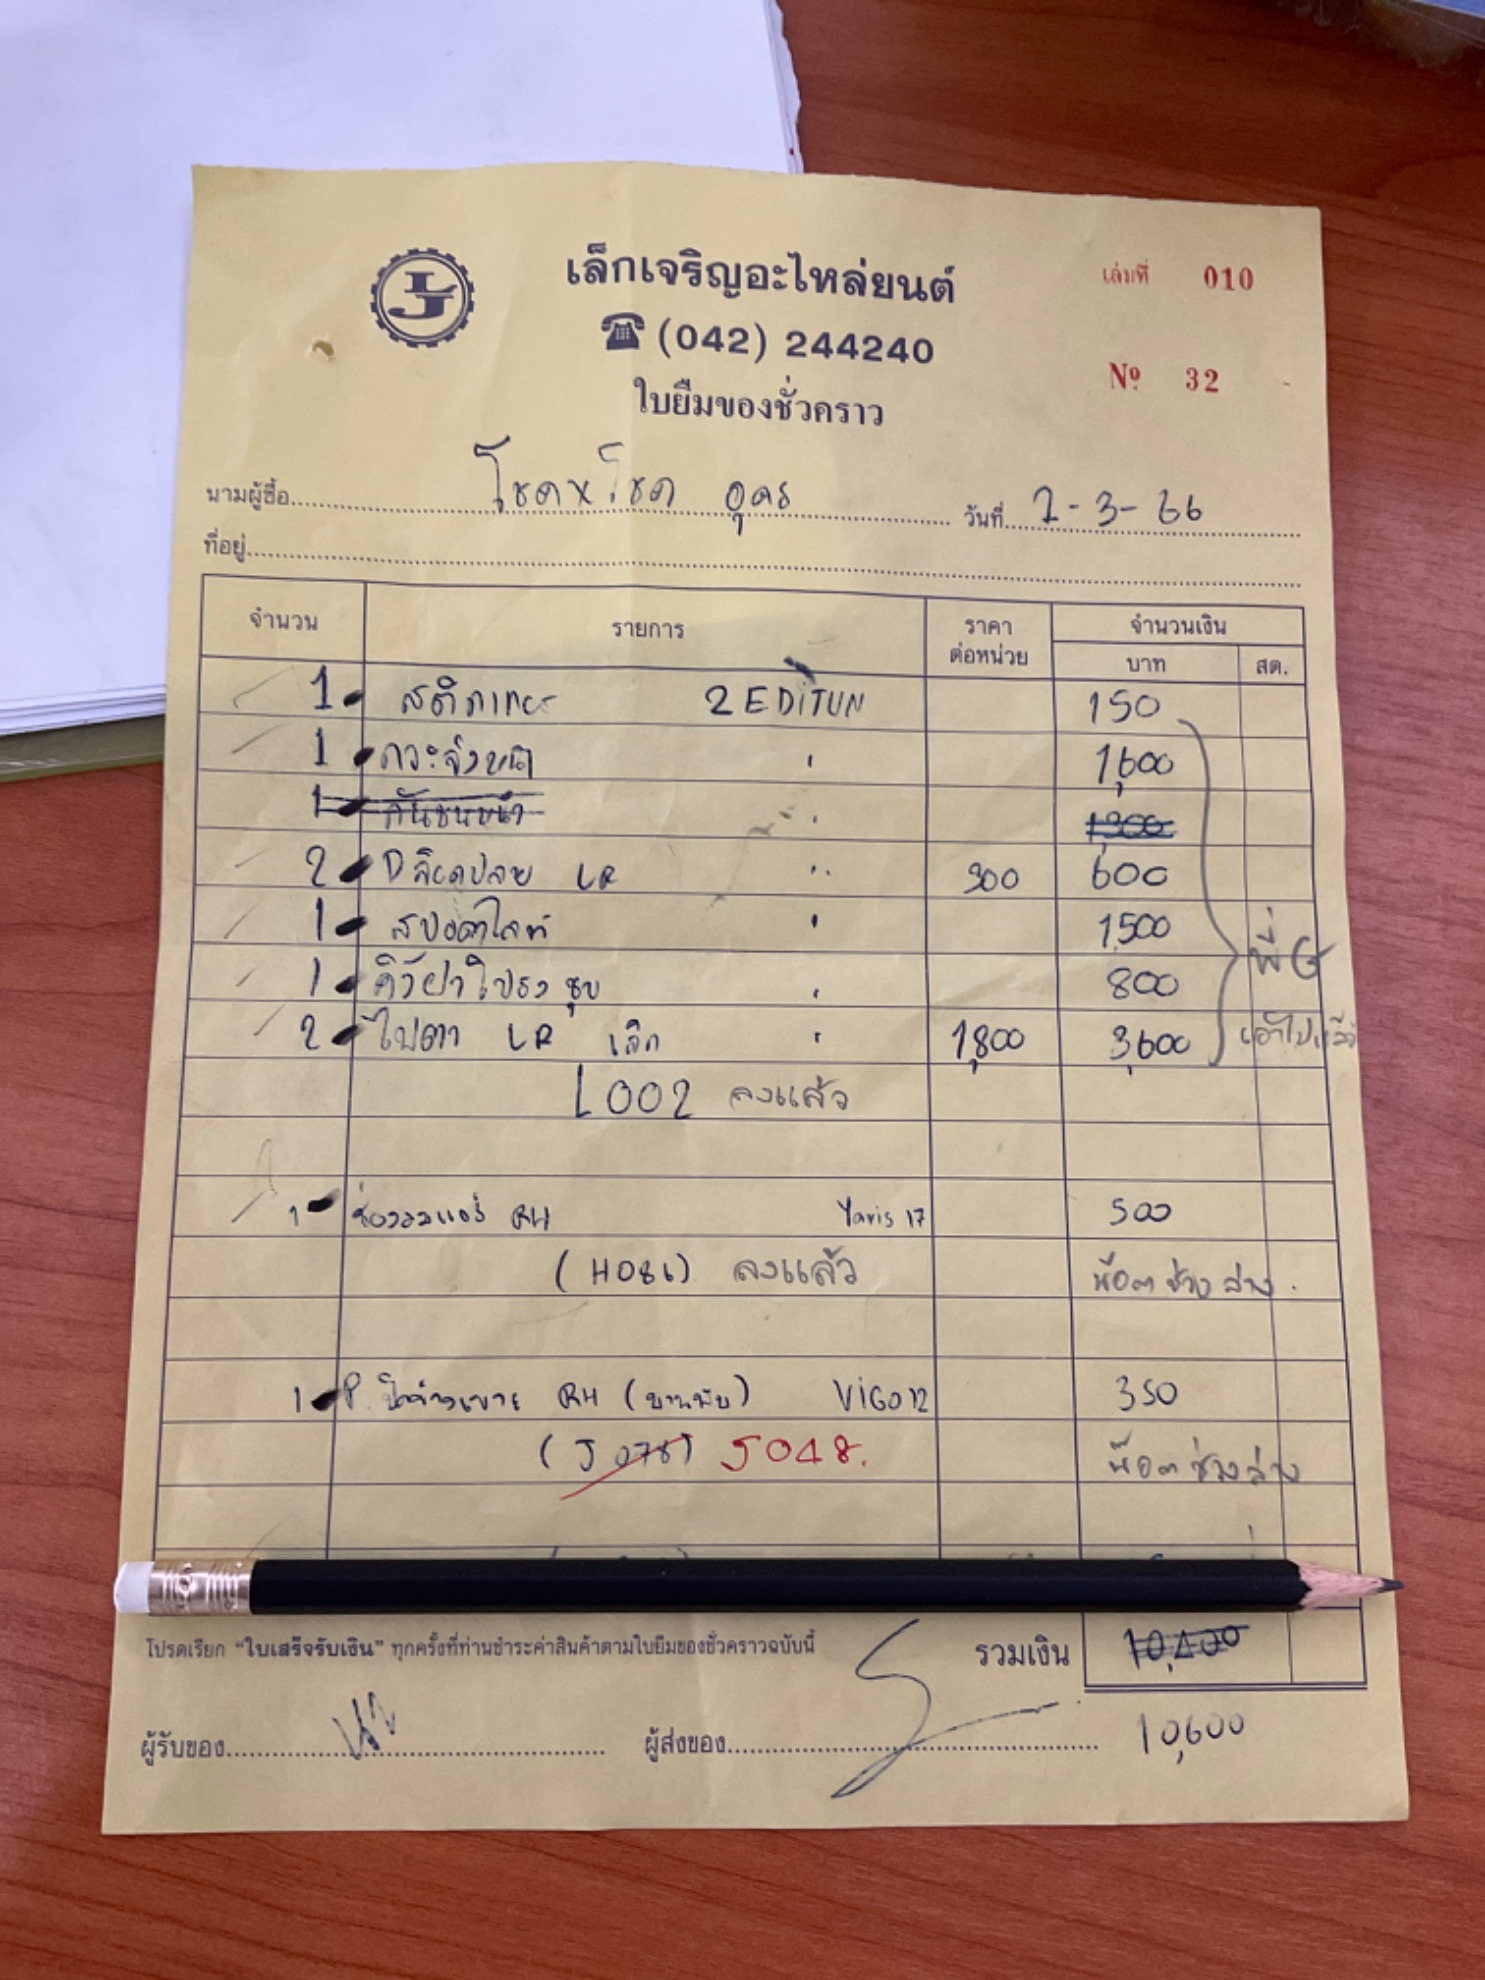 เล็กเจริญอะไหล่ยนต์
เล่มที่ 010
☎ (042) 244240
Nº 32
ใบยืมของชั่วคราว
นามผู้ซื้อ โชคxโชค อุดร วันที่ 2-3-66
ที่อยู่
จำนวน รายการ ราคาต่อหน่วย จำนวนเงิน
บาท สต.
1 สติกเกอร์ 2 EDiTUN 150
1 กระจังหน้า " 1,600
1 กันชนหน้า " 1,300
2 LR " 300 600
1 สปอตไลท์ " 1,500
1 คิ้วฝาโปรง ชุบ " 800
พี่ G
2 ไฟตา LR เล็ก " 1,800 3,600 เอาไปแล้ว
L002 ลงแล้ว
1 ช่องลมแอร์ RH Yaris 17 500
(H086) ลงแล้ว น๊อต ช่วงล่าง
1 P. RH (บานพับ) ViGO 12 350
(J078) J048. น๊อต ช่วงล่าง
โปรดเรียก “ใบเสร็จรับเงิน” ทุกครั้งที่ท่านชำระค่าสินค้าตามใบยืมของชั่วคราวฉบับนี้ รวมเงิน 10,400
ผู้รับของ ผู้ส่งของ 10,600